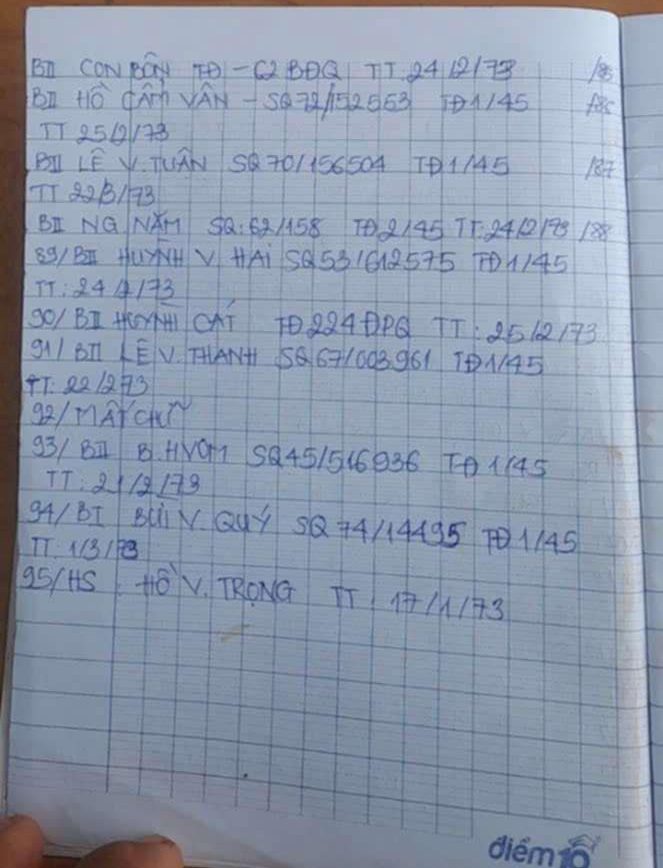 BII CON BỐN TĐ - 62 BĐQ TT. 24/2/73 /85
BII HỒ CẨM VÂN - SQ 72/152553 TĐ 1/45 /86
TT 25/2/73
BII LÊ V. TUẤN SQ 70/156504 TĐ 1/45 /87
TT 22/3/73
BII NG NĂM SQ: 62/158 TĐ 2/45 TT: 24/2/73 /88
89/ BII HUỲNH V HAI SQ 53/612575 TĐ 1/45
TT: 24/2/73
90/ BII HUỲNH CÁT TĐ 224 ĐPQ TT: 25/2/73
91/ BII LÊ V. THANH SQ 67/003961 TĐ 1/45
TT: 22/273
92/ MẤT CHỮ
93/ BII B. HVOM SQ 45/516936 TĐ 1/45
TT: 21/2/73
94/ BI BÙI V. QUÝ SQ 74/14495 TĐ 1/45
TT: 1/3/73
95/ HS: HỒ V. TRỌNG TT: 17/1/73
điểm 10